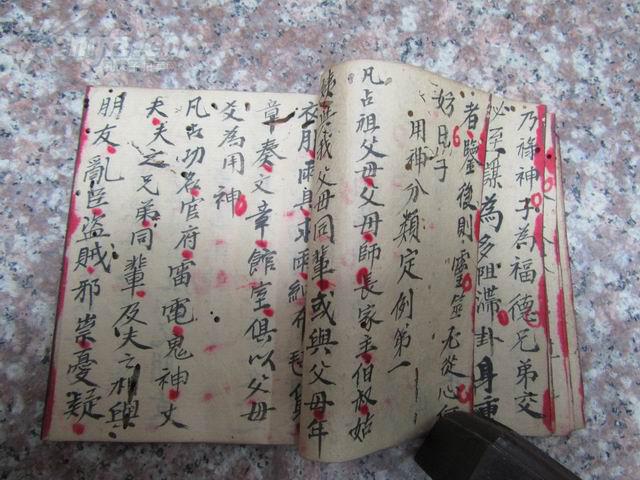 乃祿神子為福德兄弟交
必至謀為多阻滯卦身重
者靈後則靈无從心
好日子
用神分類定例第一
凡占祖父母父母師長家主伯叔姑
我父母同輩或與父母年
衣服雨具求雨紬布毛貨
章奏文章館室俱以父母
爻為用神
凡占功名官府雷電鬼神丈
夫夫之兄弟同輩及夫之相與
朋友亂臣盜賊邪祟憂疑